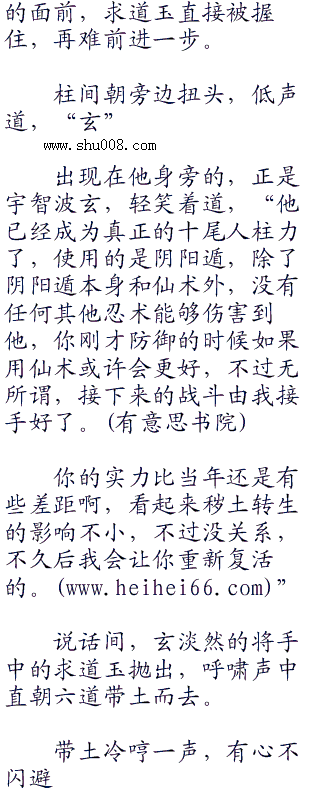 的面前，求道玉直接被握
住，再难前进一步。
柱间朝旁边扭头，低声
道，“玄”
www.shu008.com
出现在他身旁的，正是
宇智波玄，轻笑着道，“他
已经成为真正的十尾人柱力
了，使用的是阴阳遁，除了
阴阳遁本身和仙术外，没有
任何其他忍术能够伤害到
他，你刚才防御的时候如果
用仙术或许会更好，不过无
所谓，接下来的战斗由我接
手好了。(有意思书院)
你的实力比当年还是有
些差距啊，看起来秽土转生
的影响不小，不过没关系，
不久后我会让你重新复活
的。(www.heihei66.com)”
说话间，玄淡然的将手
中的求道玉抛出，呼啸声中
直朝六道带土而去。
带土冷哼一声，有心不
闪避